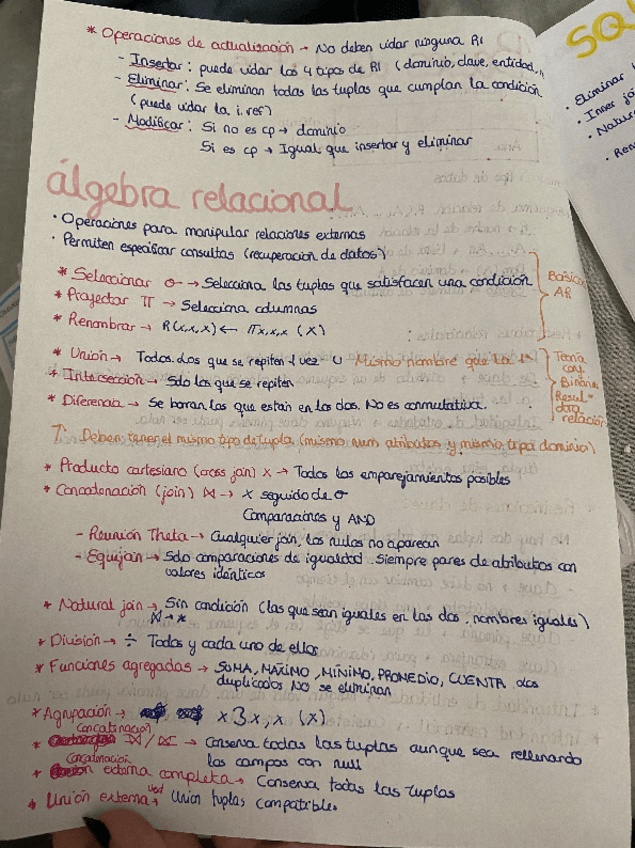 * Operaciones de actualización → No deben violar ninguna RI
- Insertar: puede violar los 4 tipos de RI (dominio, clave, entidad,
- Eliminar: Se eliminan todas las tuplas que cumplan la condición
(puede violar la i.ref)
- Modificar: Si no es cp → dominio
Si es cp → Igual que insertar y eliminar
álgebra relacional
· Operaciones para manipular relaciones externas
· Permiten especificar consultas (recuperación de datos)
* Seleccionar σ → Selecciona las tuplas que satisfacen una condición
* Proyectar π → Selecciona columnas
* Renombrar → R(x,x,x) ← πx,x,x (x)
Básicas
AR
* Unión → Todos. Los que se repiten 1 vez ∪ Mismo nombre que la 1ª
* Intersección → Sólo los que se repiten
* Diferencia → Se borran los que están en los dos. No es conmutativa.
Teoría
conj.
Binarias
Resul-
relación
Deben tener el mismo tipo de tupla (mismo num atributos y mismo tipo dominio)
* Producto cartesiano (cross join) × → Todos los emparejamientos posibles
* Concatenación (join) ⋈ → × seguido de σ
Comparaciones y AND
- Reunión Theta → Cualquier join, los nulos no aparecen
- Equijoin → Sólo comparaciones de igualdad. Siempre pares de atributos con
valores idénticos
* Natural join → Sin condición (las que sean iguales en las dos, nombres iguales)
⋈ → *
* División → ÷ Todos y cada uno de ellos
* Funciones agregadas → SUMA, MÁXIMO, MÍNIMO, PROMEDIO, CUENTA. Los
duplicados NO se eliminan
* Agrupación → x ℑ x, x (x)
concatenación
* ⟕/⟖ → Conserva todas las tuplas aunque sea rellenando
los campos con null
concatenación
* externa completa → Conserva todas las tuplas
* Unión externa → Unión tuplas compatibles
SQL
· Eliminar
· Inner joi
· Natur
· Ren